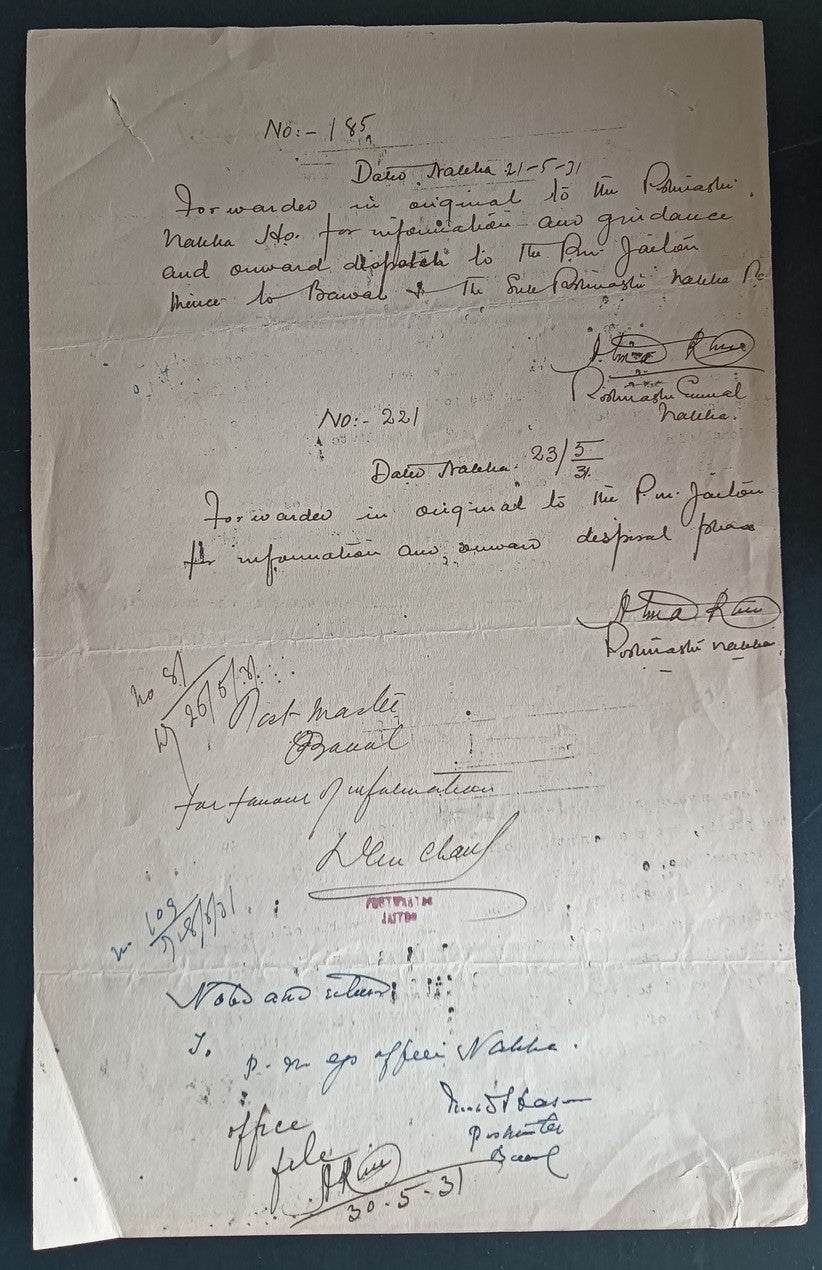 No:- 185
Dated Nabha 21-5-31
Forwarded in original to the Postmaster
Nabha Ho. for information and guidance
and onward dispatch to the P.m. Jaiton
thence to Bawal & the Sub Postmaster Nabha
Atma Ram
Postmaster General
Nabha.
No:- 221
Dated Nabha 23/5/31
Forwarded in original to the P.m. Jaiton
for information and onward disposal please
Atma Ram
Postmaster Nabha
No 81
26/5/31
Post Master
Bawal
for favour of information
Chand
POSTMASTER
JAITO
109
28/5/31
Noted and return
To
P. M. G's office Nabha.
Postmaster
Bawal
office
file
A Ram
30-5-31